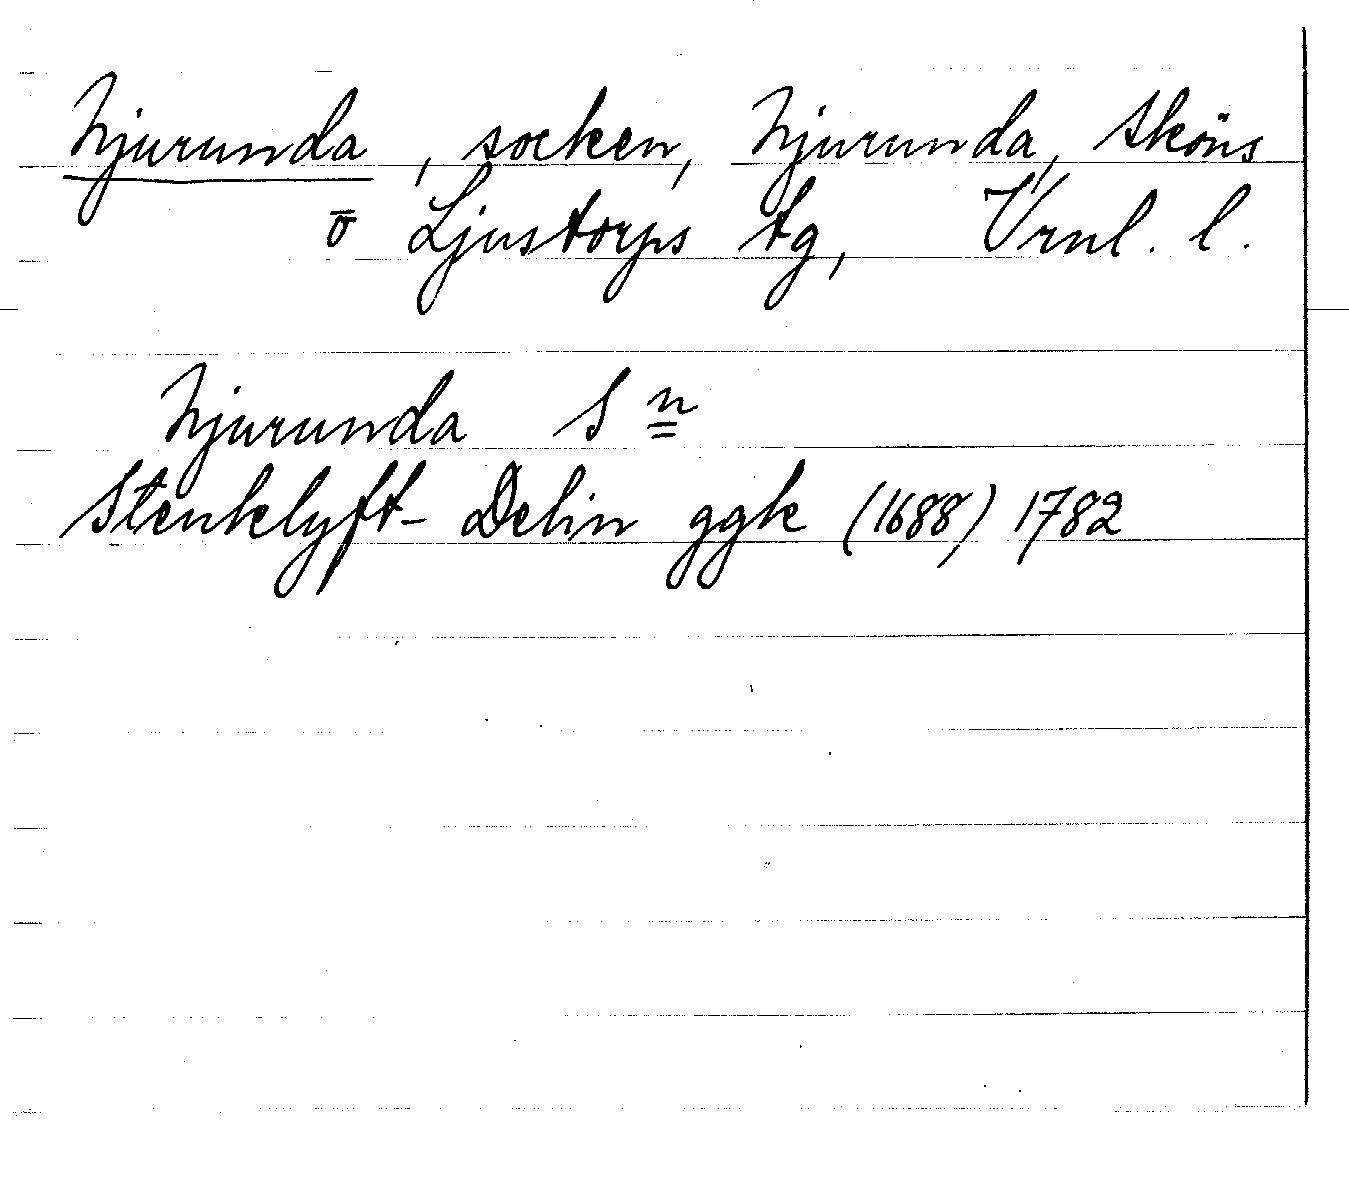 Njurunda, socken, Njurunda, Sköns
o Ljustorps tg, Vrnl. l.
Njurunda Sn
Stenklyft- Delin ggk (1688) 1782